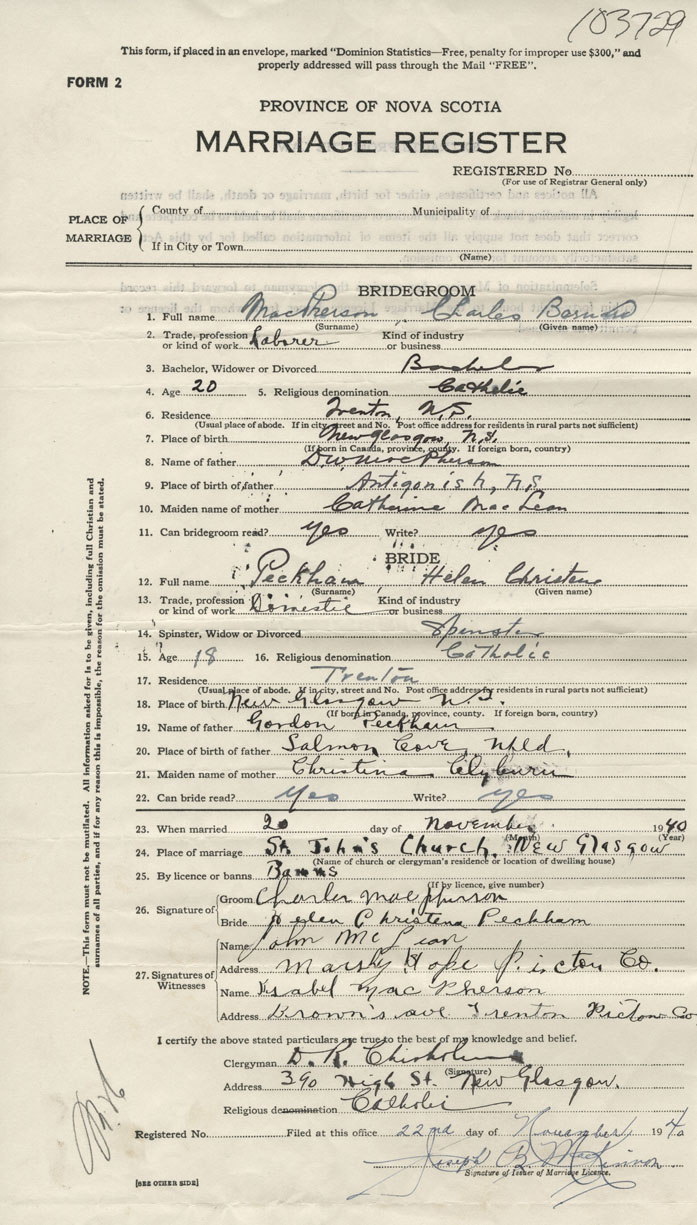 103729
This form, if placed in an envelope, marked "Dominion Statistics—Free, penalty for improper use $300," and
properly addressed will pass through the Mail "FREE".
FORM 2
PROVINCE OF NOVA SCOTIA
MARRIAGE REGISTER
REGISTERED No.
(For use of Registrar General only)
PLACE OF MARRIAGE
County of Municipality of
If in City or Town
(Name)
BRIDEGROOM
1. Full name MacPherson, Charles Barnard
(Surname) (Given name)
2. Trade, profession or kind of work Laborer Kind of industry or business
3. Bachelor, Widower or Divorced Bachelor
4. Age 20 5. Religious denomination Catholic
6. Residence Trenton, N.S.
(Usual place of abode. If in city, street and No. Post office address for residents in rural parts not sufficient)
7. Place of birth New Glasgow, N.S.
(If born in Canada, province, county. If foreign born, country)
8. Name of father MacPherson
9. Place of birth of father Antigonish, N.S.
10. Maiden name of mother Catherine MacLean
11. Can bridegroom read? yes Write? yes
BRIDE
12. Full name Peckham Helen Christene
(Surname) (Given name)
13. Trade, profession or kind of work Domestic Kind of industry or business
14. Spinster, Widow or Divorced Spinster
15. Age 18 16. Religious denomination Catholic
17. Residence Trenton
(Usual place of abode. If in city, street and No. Post office address for residents in rural parts not sufficient)
18. Place of birth New Glasgow N.S.
(If born in Canada, province, county. If foreign born, country)
19. Name of father Gordon Peckham
20. Place of father Salmon Cove, Nfld.
21. Maiden name of mother Christina Clyburn
22. Can bride read? Yes Write? yes
23. When married 20 day of November 1940
(Month) (Year)
24. Place of marriage St. John's Church, New Glasgow
(Name of church or clergyman's residence or location of dwelling house)
25. By licence or banns Banns
(If by licence, give number)
26. Signature of
Groom Charles Macpherson
Bride Helen Christena Peckham
27. Signatures of Witnesses
Name John McLean
Address Marshy Hope Pictou Co.
Name Isabel MacPherson
Address Brown's ave Trenton Pictou Co
I certify the above stated particulars are true to the best of my knowledge and belief.
Clergyman D. R. Chisholm
(Signature)
Address 390 High St. New Glasgow.
Religious denomination Catholic
Registered No. Filed at this office 22nd day of November 1940
Joseph B. MacKinnon
Signature of Issuer of Marriage Licence.
[SEE OTHER SIDE]
NOTE.—This form must not be mutilated. All information asked for is to be given, including full Christian and
surnames of all parties, and if for any reason this is impossible, the reason for the omission must be stated.